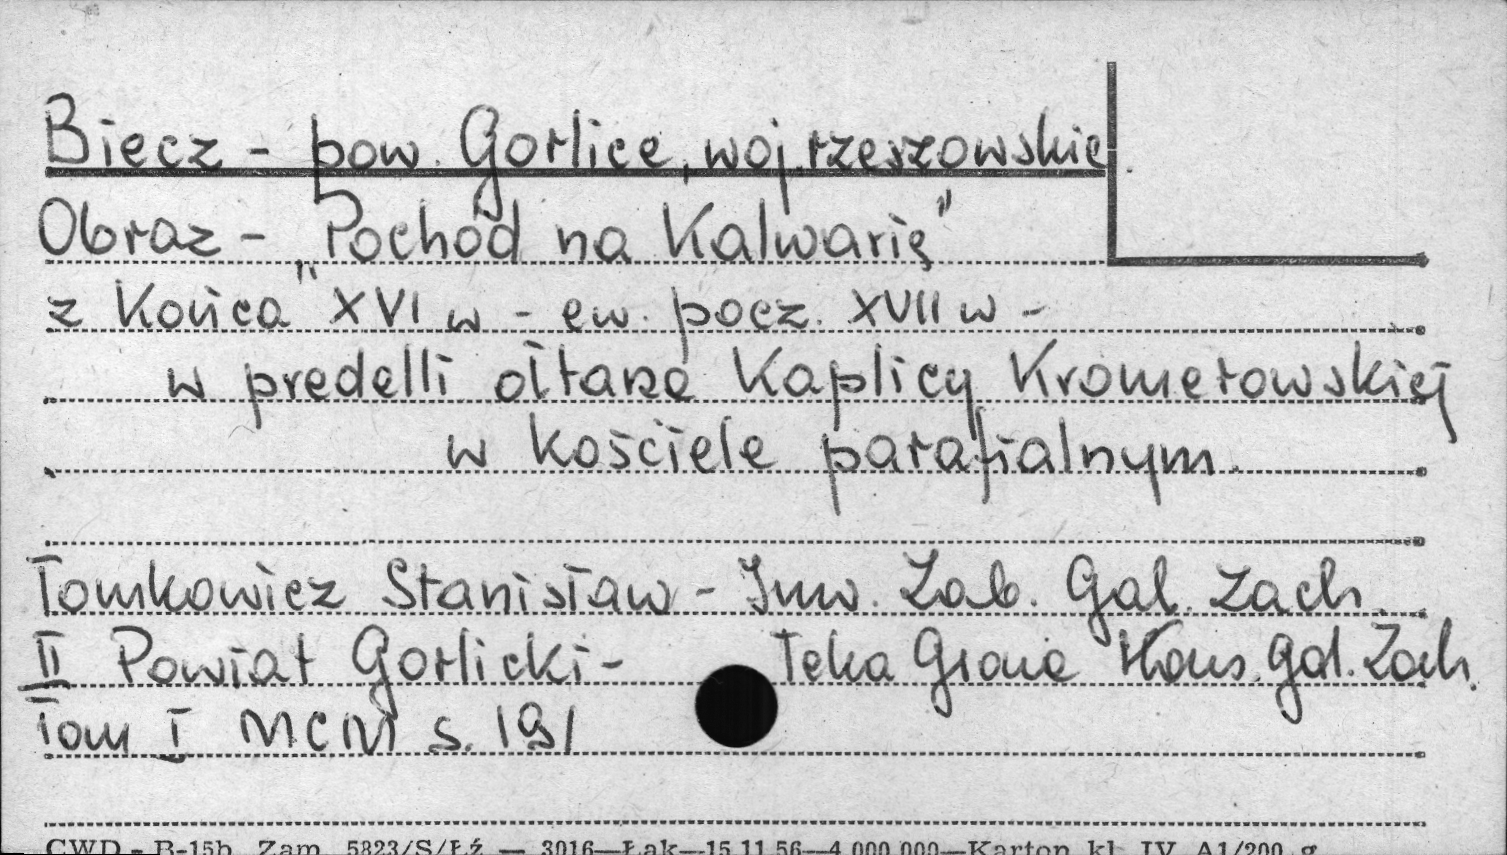 Biecz - pow. Gorlice, woj. rzeszowskie
Obraz - „Pochód na Kalwarię"
z końca XVI w - ew. pocz. XVII w -
w predelli ołtarza Kaplicy Kromerowskiej
w kościele parafialnym.
Tomkowicz Stanisław - Inw. Zab. Gal. Zach.
II Powiat Gorlicki - Teka Grona Kons. Gal. Zach.
Tom I MCM s. 191
CWD - B-15b. Zam. 5823/S/Łź — 3016—Łak—15.11.56—4.000.000—Karton kl. IV. A1/200 g